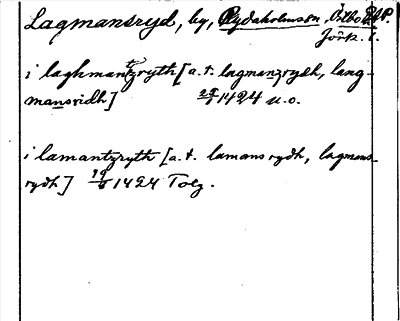 Lagmansryd, by, Rydaholms sn Östbo
Jönk. l.
i laghmantzryth [a.t. lagmanzrydh, lang-
mansridh] 1424 u.o.
i lamantzryth [a.t. lamans rydh, lagmans-
rydh] 1424 Tolg.